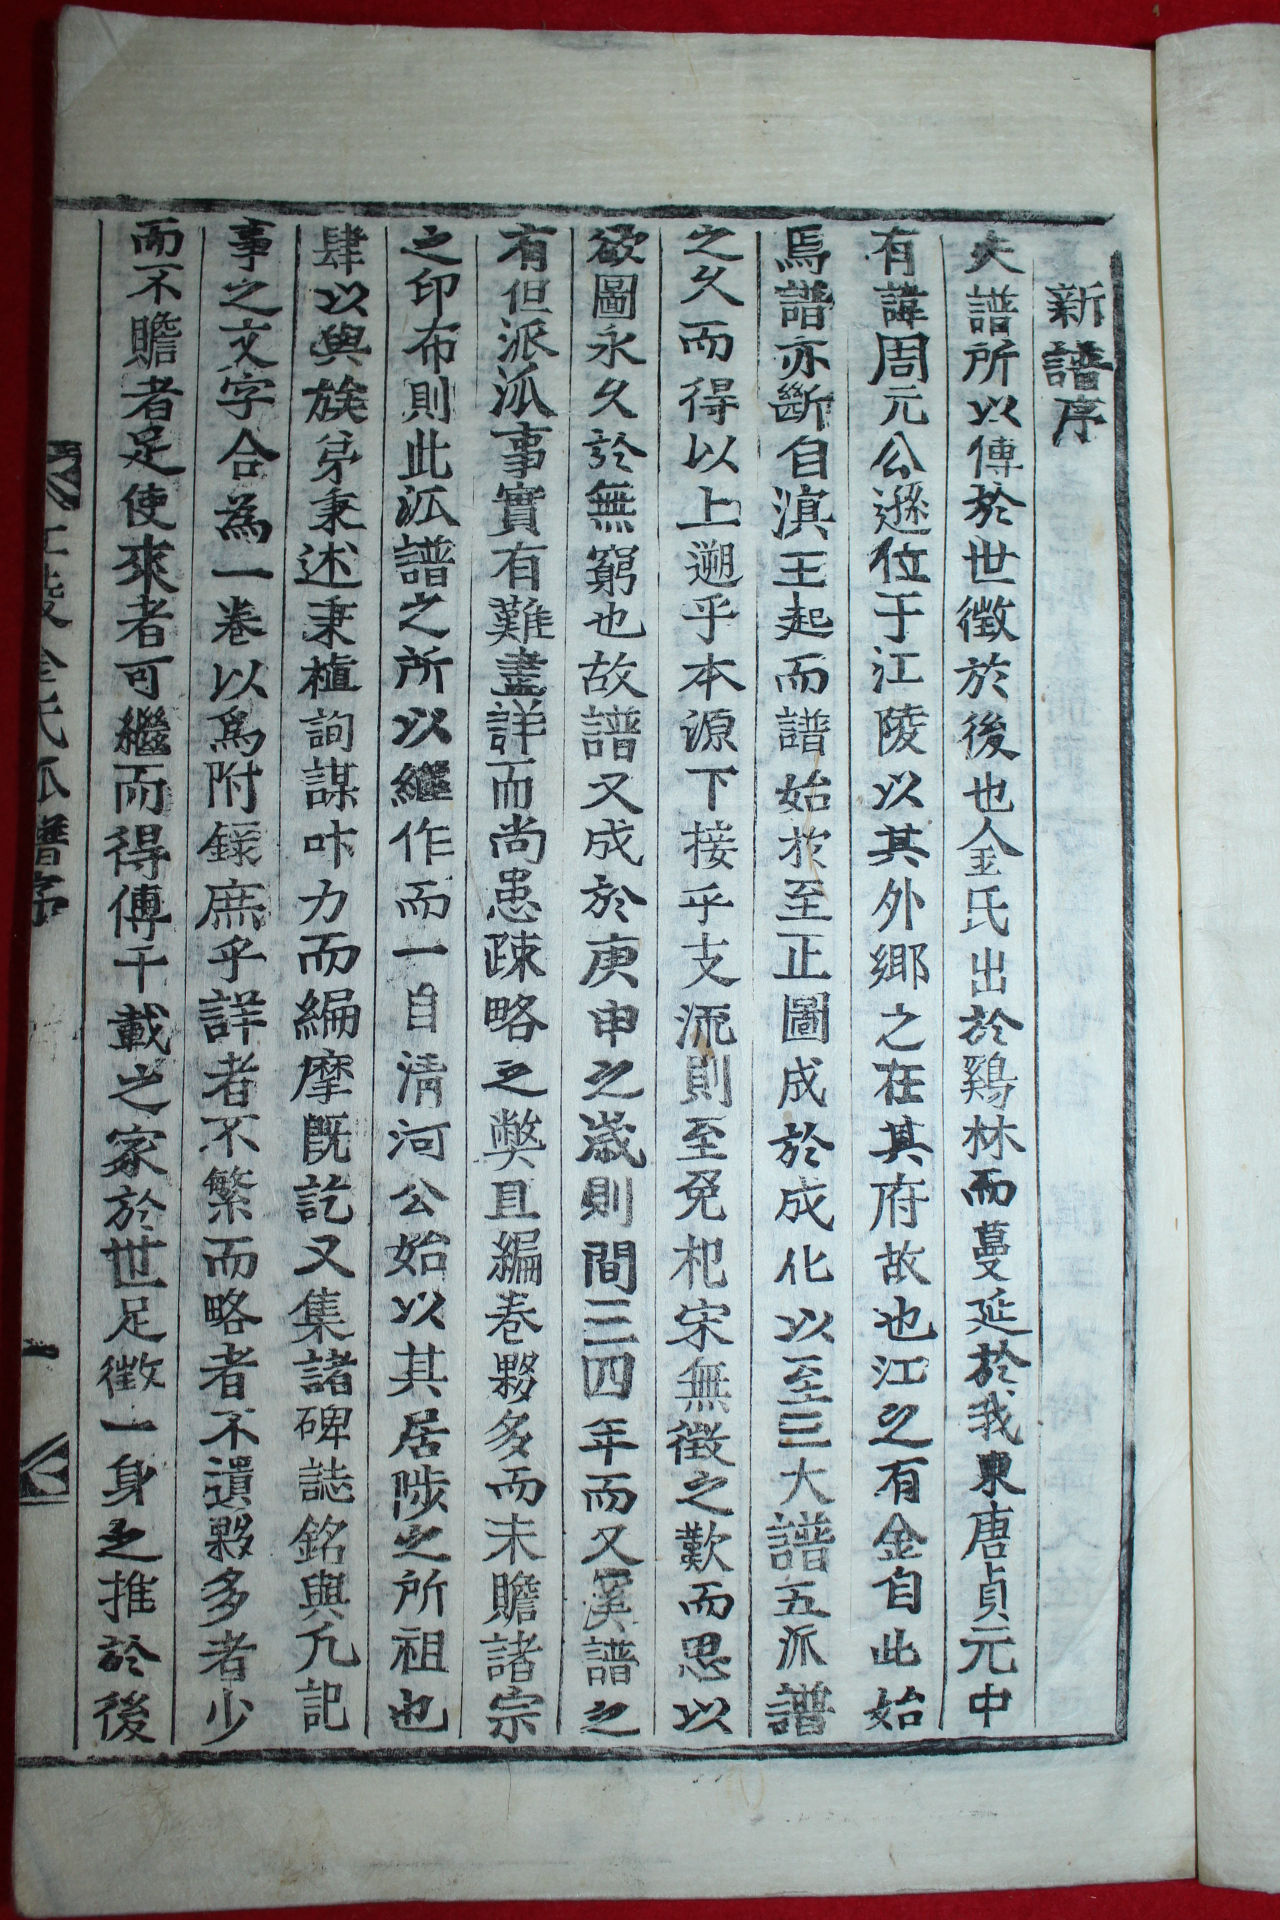 新譜序
夫譜所以傳於世徵於後也金氏出於鷄林而蔓延於我東唐貞元中
有諱周元公遜位于江陵以其外鄕之在其府故也江之有金自此始
焉譜亦斷自溟王起而譜始於至正圖成於成化以至三大譜五派譜
之久而得以上遡乎本源下接乎支流則至免杞宋無徵之歎而思以
欲圖永久於無窮也故譜又成於庚申之歲則間三四年而又溪譜之
有但派派事實有難盡詳而尚患踈略之弊且編卷夥多而未贍諸宗
之印布則此派譜之所以繼作而一自清河公始以其居陟之所祖也
肆以與族弟秉述秉植詢謀咔力而編摩旣訖又集諸碑誌銘與凡記
事之文字合為一卷以爲附錄庶乎詳者不繁而略者不遺夥多者少
而不贍者足使來者可繼而得傳千載之家於世足徵一身之推於後
江陵金氏派譜序
一